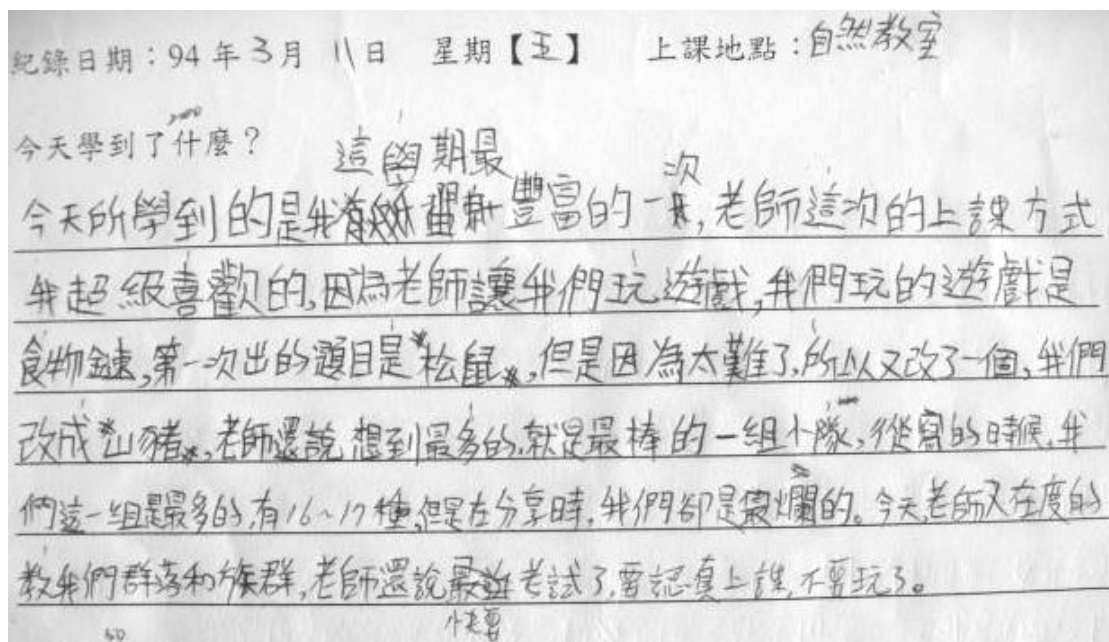 紀錄日期：94年3月11日 星期【五】 上課地點：自然教室
今天學到了什麼？
這學期最 次
今天所學到的是我豐富的一，老師這次的上課方式
我超級喜歡的，因為老師讓我們玩遊戲，我們玩的遊戲是
食物鏈，第一次出的題目是*松鼠*，但是因為太難了，所以又改了一個，我們
改成*山豬*，老師還說想到最多的，就是最棒的一組小隊，從寫的時候，我
們這一組是最多的，有16~17種，但是在分享時，我們卻是最爛的。今天，老師又在度的
教我們群落和族群，老師還說考試了，要認真上課，不要玩了。
快要
50